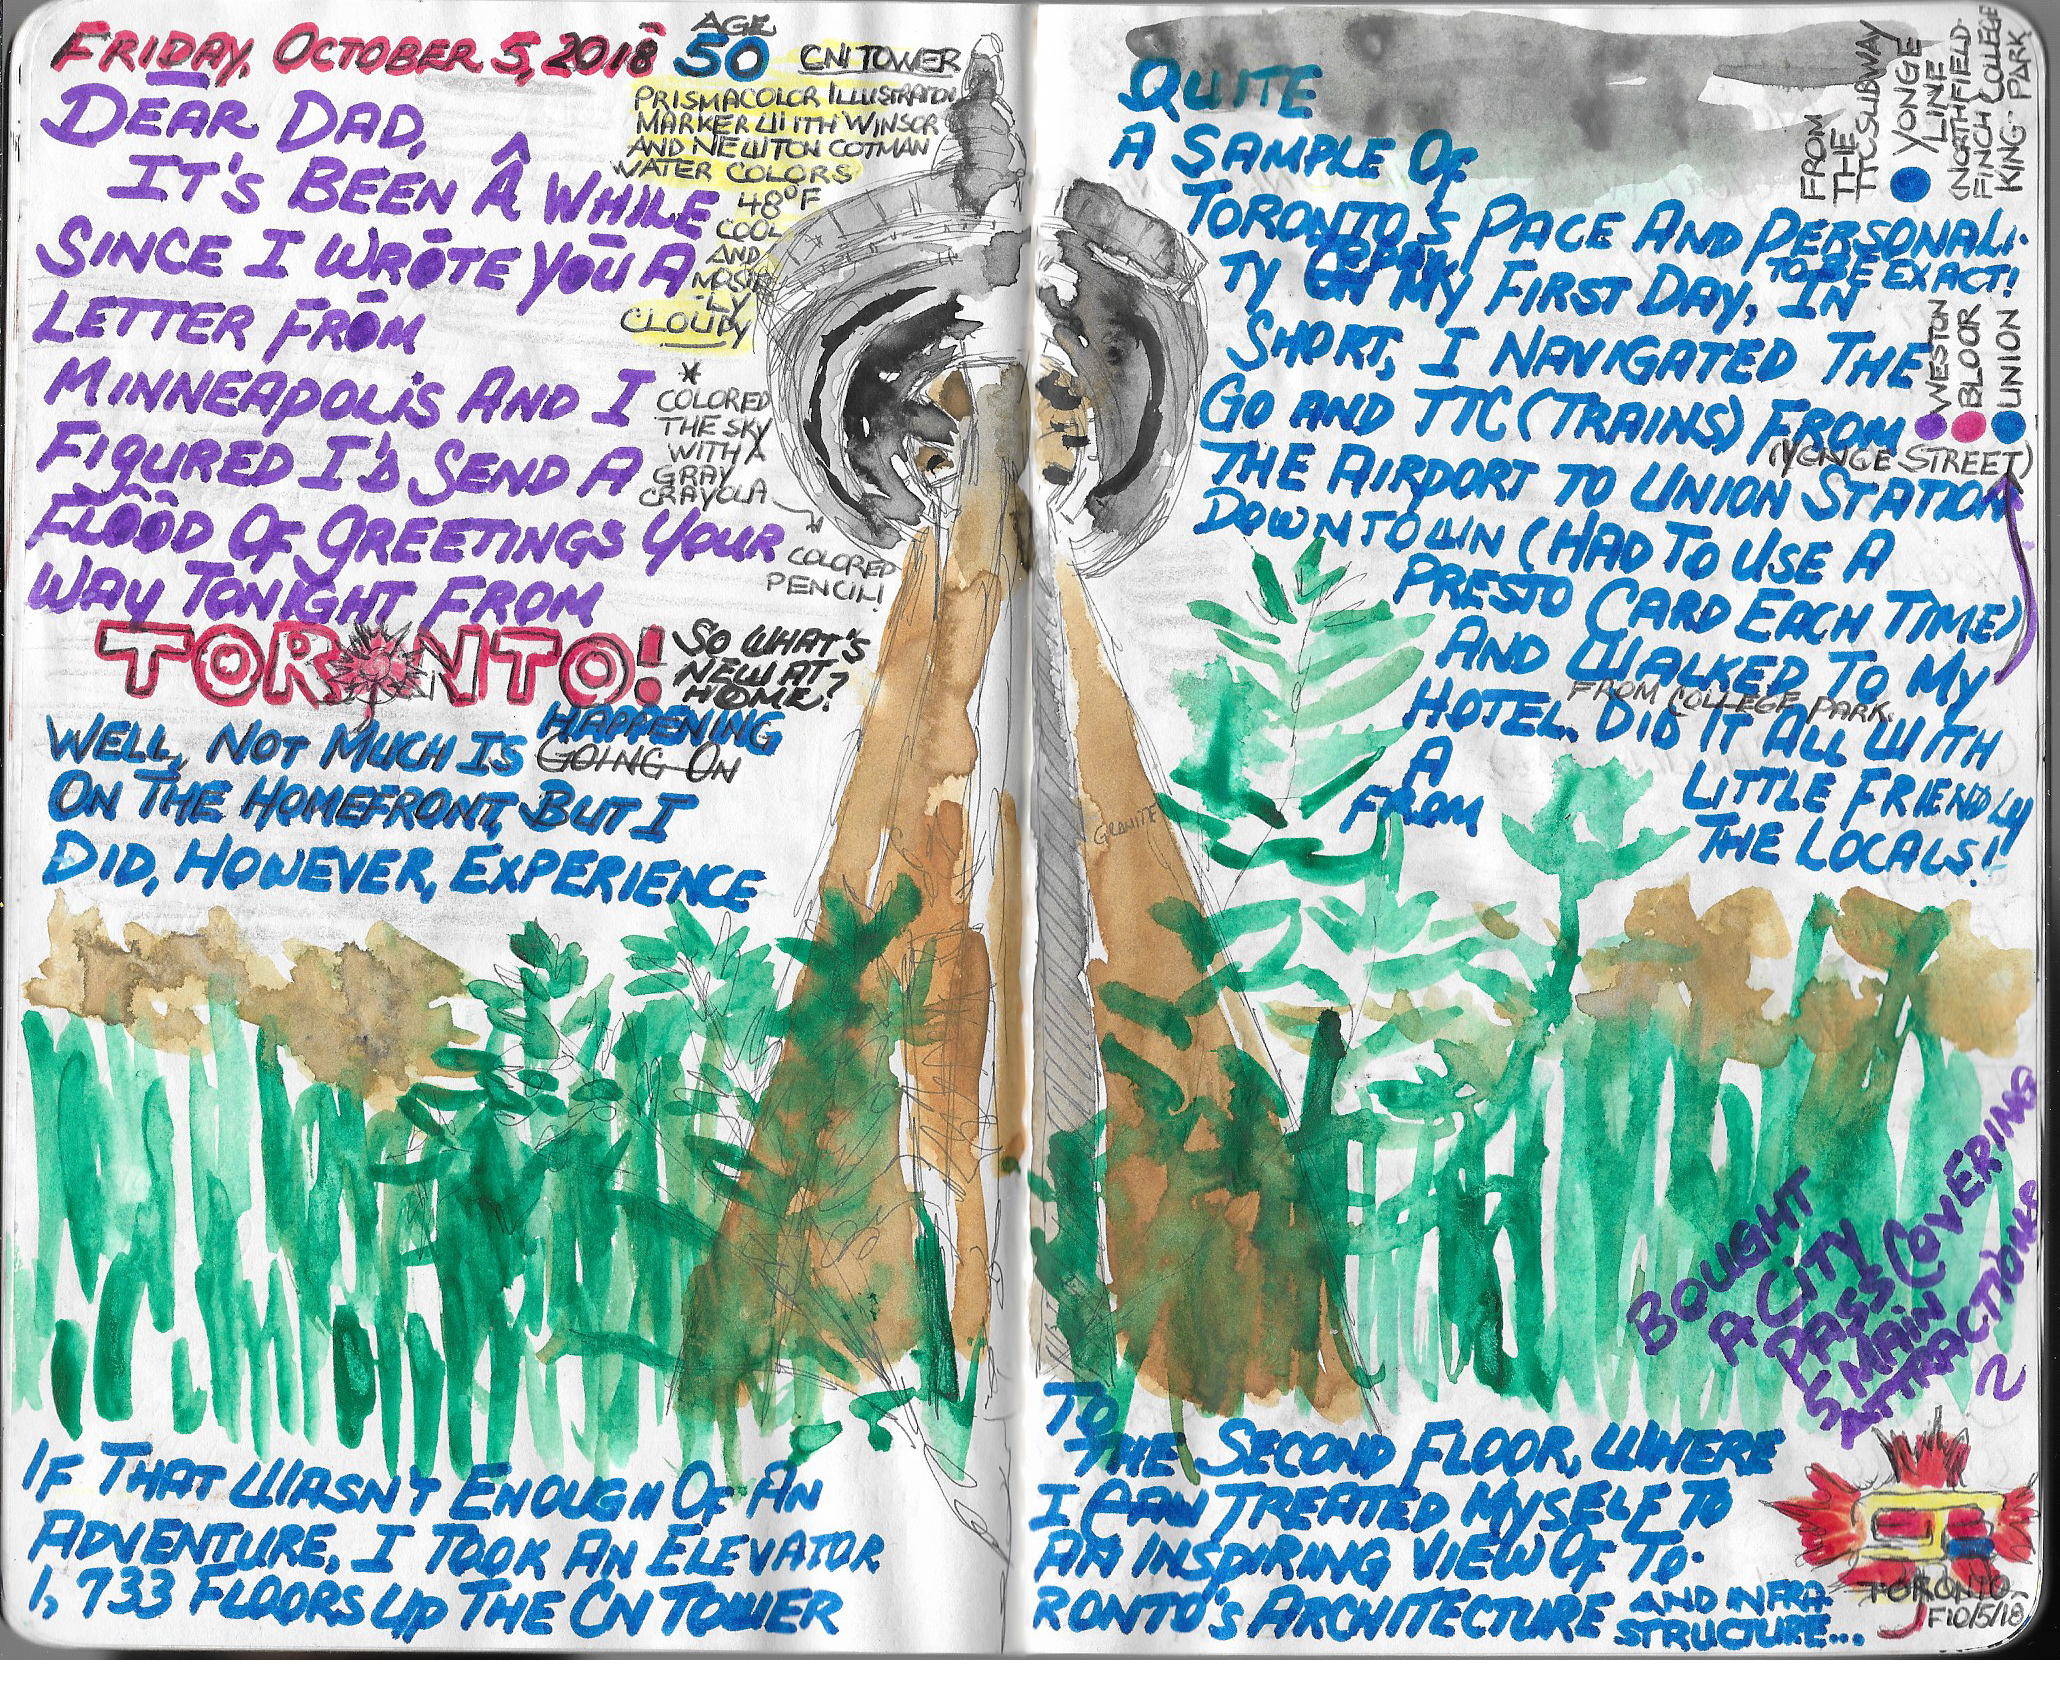 FRIDAY, OCTOBER 5, 2018
AGE
50
DEAR DAD,
IT'S BEEN A WHILE
SINCE I WROTE YOU A
LETTER FROM
MINNEAPOLIS AND I
FIGURED I'D SEND A
FLOOD OF GREETINGS YOUR
WAY TONIGHT FROM
TORONTO!
CN TOWER
PRISMACOLOR ILLUSTRATION
MARKER WITH WINSOR
AND NEWTON COTMAN
WATER COLORS
48°F
COOL
AND
MOST
-LY
CLOUDY
*
COLORED
THE SKY
WITH A
GRAY
CRAYOLA
COLORED
PENCIL!
SO WHAT'S
NEW AT
HOME?
WELL, NOT MUCH IS HAPPENING
GOING ON
ON THE HOMEFRONT, BUT I
DID, HOWEVER, EXPERIENCE
QUITE
A SAMPLE OF
TORONTO'S PACE AND PERSONALI-
TY ON MY FIRST DAY, IN
TODAY
TO BE EXACT!
SHORT, I NAVIGATED THE
GO AND TTC (TRAINS) FROM
(YONGE STREET)
THE AIRPORT TO UNION STATION
DOWNTOWN (HAD TO USE A
PRESTO CARD EACH TIME)
AND WALKED TO MY
FROM COLLEGE PARK.
HOTEL. DID IT ALL WITH
A LITTLE FRIENDLY
FROM THE LOCALS!
FROM
THE
TTC SUBWAY
YONGE
LINE
(NORTHFIELD-
FINCH COLLEGE
KING- PARK
WESTON
BLOOR
UNION
GRANITE
BOUGHT
A CITY
PASS COVERING
5 MAIN
ATTRACTIONS
IF THAT WASN'T ENOUGH OF AN
ADVENTURE, I TOOK AN ELEVATOR
1,733 FLOORS UP THE CN TOWER
TO
THE SECOND FLOOR, WHERE
I TREATED MYSELF TO
AN INSPIRING VIEW OF TO-
RONTO'S ARCHITECTURE AND INFRA-
STRUCTURE...
TORONTO,
F10/5/18